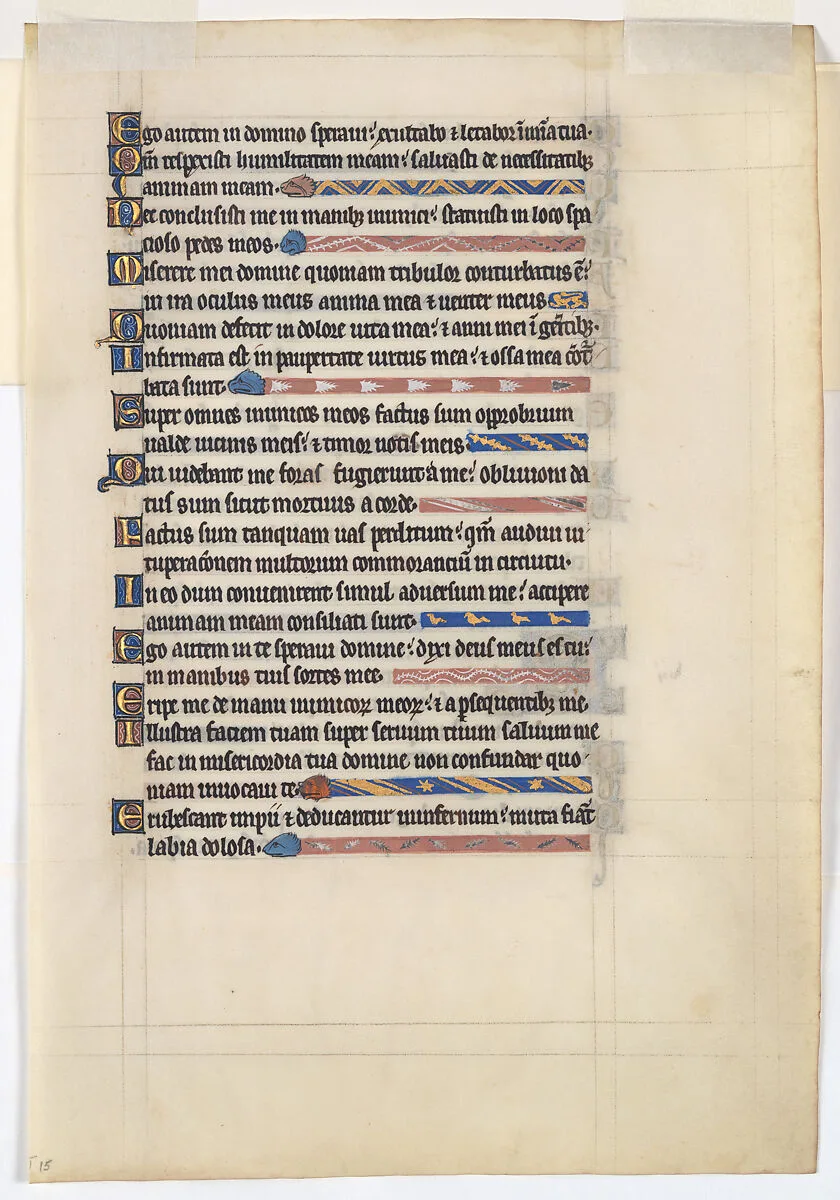 Ego autem in domino speraui: exultabo ⁊ letabor ī mīa tua.
Qm̄ respexisti humilitatem meam: saluasti de necessitatibꝫ
animam meam.
Nec conclusisti me in manibꝫ inimici: statuisti in loco spa
cioso pedes meos.
Miserere mei domine quoniam tribulor conturbatus ē:
in ira oculus meus anima mea ⁊ uenter meus
Quoniam defecit in dolore uita mea: ⁊ anni mei ī gemitibꝫ.
Infirmata est in paupertate uirtus mea: ⁊ ossa mea cōt̄
bata sunt.
Super omnes inimicos meos factus sum opprobrium
ualde uicinis meis: ⁊ timor notis meis
Qui uidebant me foras fugierunt a me: obliuioni da
tus sum sicut mortuus a corde.
Factus sum tanquam uas perditum: qm̄ audiui ui
tuperac̄onem multorum commoranciū in circuitu.
In eo dum conuenirent simul aduersum me: accipere
animam meam consiliati sunt.
Ego autem in te speraui domine: dixi deus meus es tu:
in manibus tuis sortes mee.
Eripe me de manu inimicoꝝ meoꝝ: ⁊ a ꝑsequentibꝫ me.
Illustra faciem tuam super seruum tuum saluum me
fac in misericordia tua domine non confundar quo
niam inuocaui te.
Erubescant impii ⁊ deducantur in infernum: muta fiāt
labia dolosa.
15